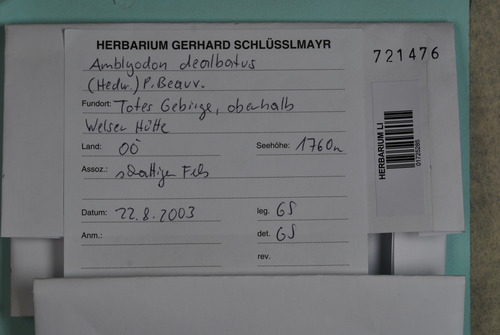 HERBARIUM GERHARD SCHLÜSSLMAYR
721476
Amblyodon dealbatus
(Hedw.) P. Beauv.
Fundort: Totes Gebirge, oberhalb
Welser Hütte
Land: OÖ
Seehöhe: 1760m
Assoz.: schattiger Fels
Datum: 22.8.2003
leg. GS
Anm.:
det. GS
rev.
HERBARIUM LI